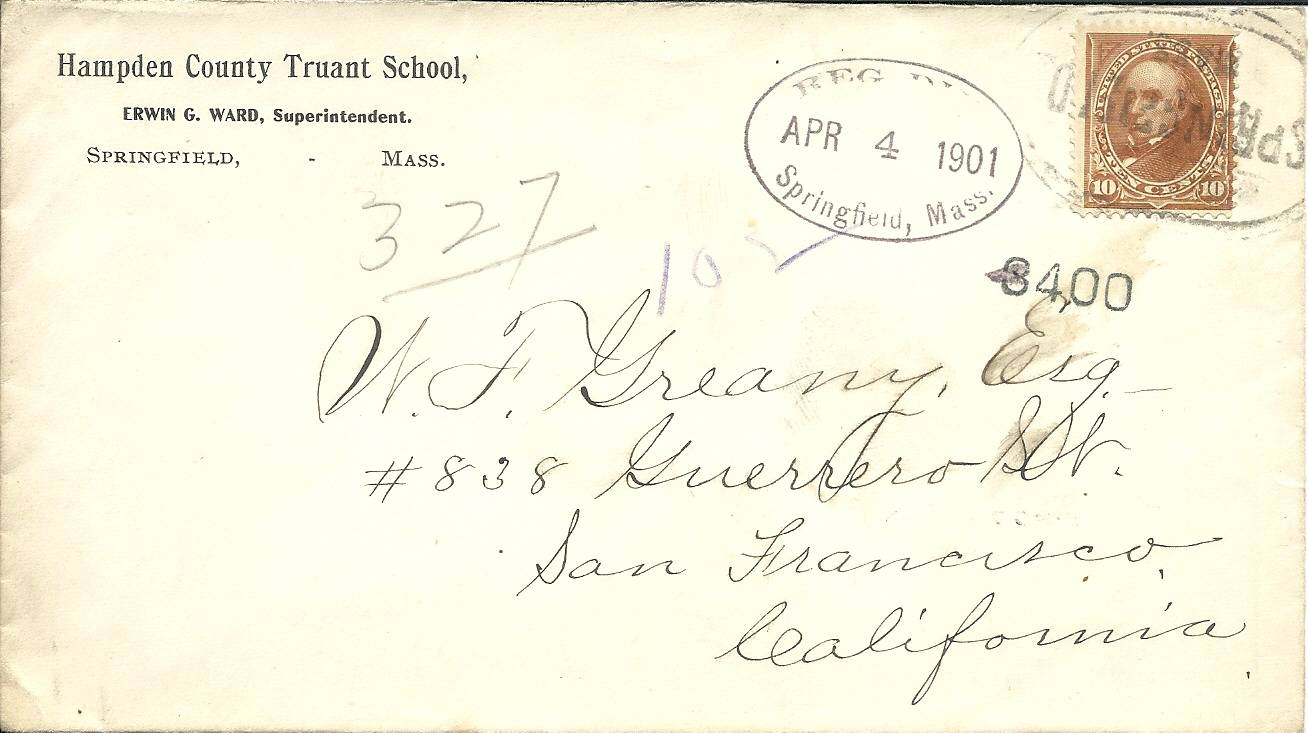 Hampden County Truant School,
ERWIN G. WARD, Superintendent.
SPRINGFIELD, - MASS.
REG. DIV
APR 4 1901
Springfield, Mass.
UNITED STATES POSTAGE
10 TEN CENTS 10
SPRINGFIELD
327
102
8400
W. F. Greany, Esq
#838 Guerrero St.
San Francisco,
California